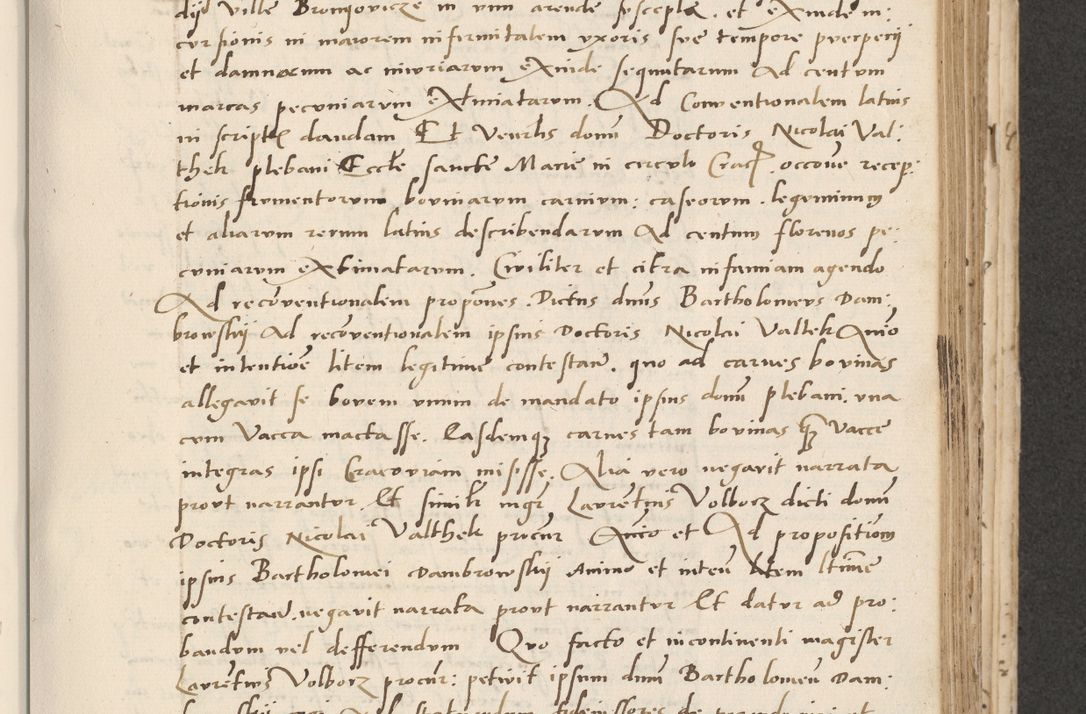 dij Ville Bronijovicze in vim arende suscepte. et exinde in:
cursionis in maiorem infirmitatem vxoris sue tempore puerperij
et damnorum ac iniuriarum exinde sequutarum Ad centum
marcas pecuniarum extimatarum. Ad Conventionalem latius
in scriptis dandam Et Venrlis domi Doctoris Nicolai Val:
thek plebani Eccle sancte Marie in circulo Crac. occone recep:
tionis frumentorum bovinarum carnium: caseorum. leguminum
et aliarum rerum latius describendarum Ad centum florenos pe:
cuniarum extimatarum. Civiliter et citra infamiam agendo
Ad reconventionalem propones. Dictus dnus Bartholomeus Dam:
browskij Ad reconventionalem ipsius Doctoris Nicolai Valtek Anio
et intentione litem legitime contestan. quo ad carnes bovinas
allegavit se bovem vnum de mandato ipsius domi plebani. vna
cum Vacca mactasse. Easdemq carnes tam bovinas q Vacce
integras ipsi Cracoviam misisse. Alia vero negavit narrata
prout narrantur. Et similr mgr Laurentius Volborz dicti domi
Doctoris Nicolai Valthek procur Anio et Ad propositionem
ipsius Bartholomei Dambrowskij Animo et inten litem ltime
contestand. negavit narrata prout narrantur Et datur ad pro:
bandum vel defferendum Quo facto et incontinenti magister
Laurentius Volborz procur: petivit ipsum dnum Bartholomeum Dam: